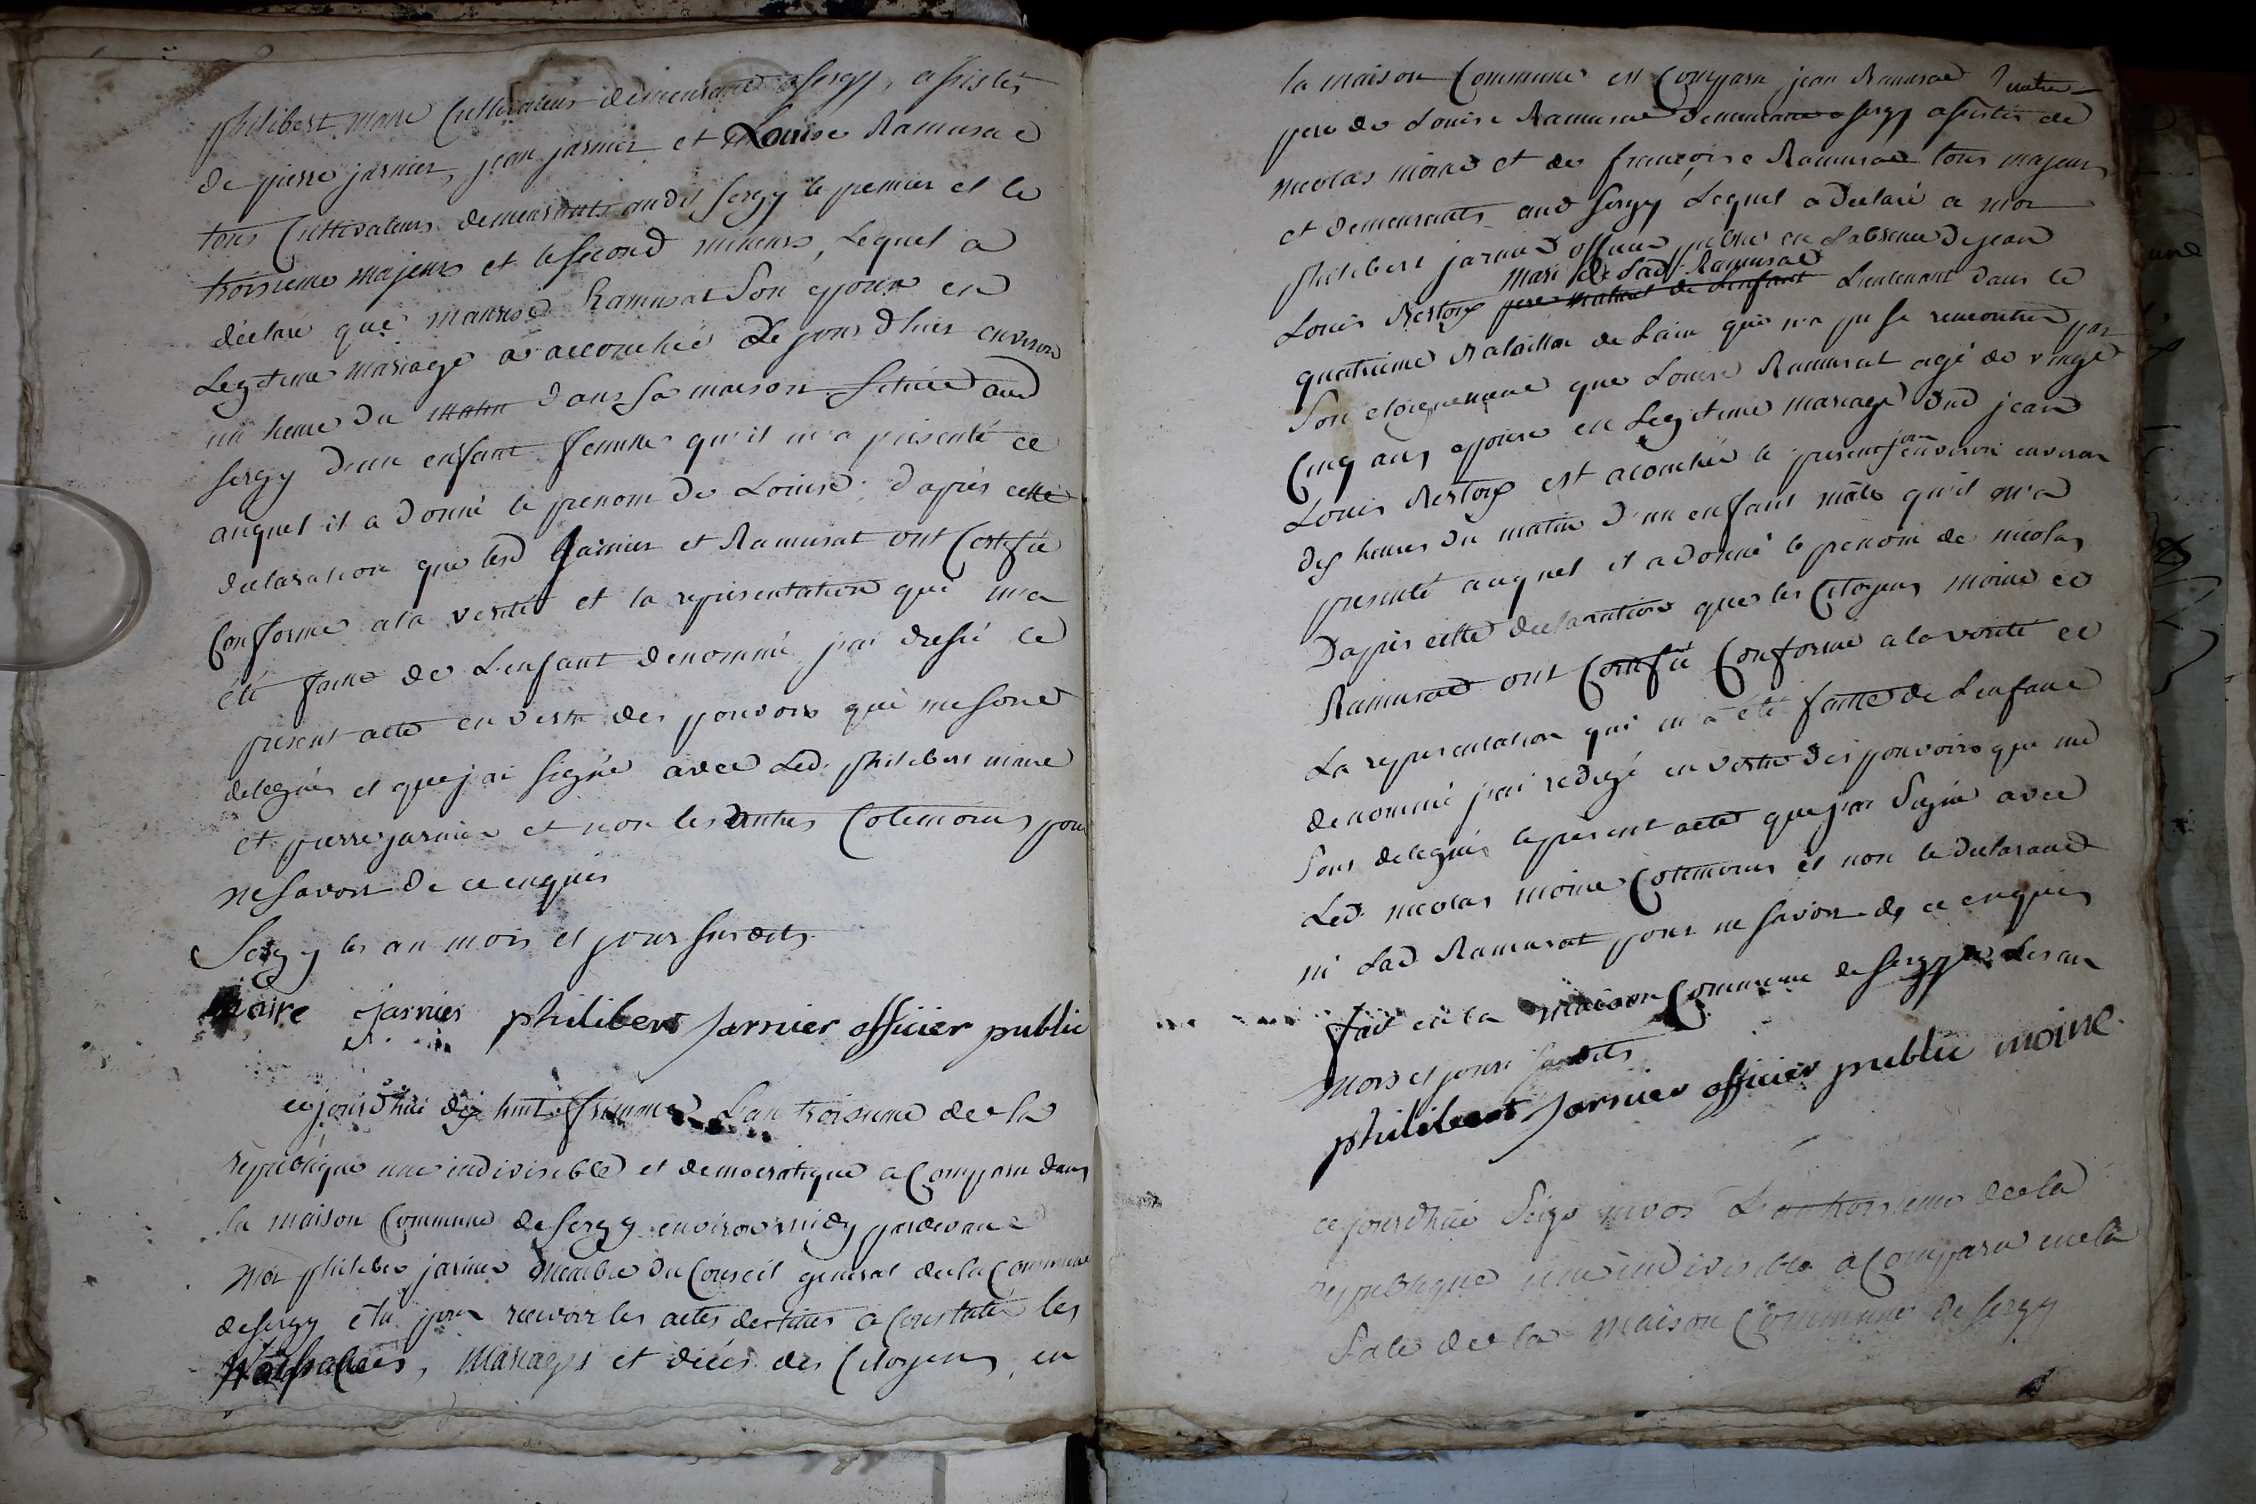 philibert maire Cultivateur demeurant a Sergy, assistés
de pierre jarnier, jean jarnier et Louise Ramusat
tous Cultivateurs demeurants audit Sergy le premier et le
troisieme majeurs et le second mineur, Lequel a
déclaré que Ramusat Son epouse en
Legitime mariage a accouchée Le jour d'hier environ
un heure du matin dans Sa maison Scituée aud
Sergy d'un enfant femelle qu'il m'a présenté et
auquel il a donné le prenom de Louise, d'après cette
declaration que lesd jarnier et Ramusat ont Certifié
Conforme a la verité et la représentation qui m'a
été faitte de L'enfant denommé j'ai dressé le
présent acte en vertu des pouvoirs qui me sont
delegués et que j'ai Signé avec Led. philibert maire
et pierre jarnier et non les autres Cotemoins pour
ne Savoir de ce enquis
Sergy les an mois et jour susdits
Maire jarnier philibert jarnier officier public
ce jourd'hui dix huit frimaire L'an troisieme de la
république une indivisible et democratique a Comparu dans
la maison Commune de Sergy environ midy pardevant
Moi philibert jarnier membre du Conseil general de la Commune
de Sergy élu pour recevoir les actes destinés a Constater les
Naissances, Mariages et décés des Citoyens, en
la maison Commune est Comparu jean Ramusat
pere de Louise Ramusat demeurant a Sergy assistés de
nicolas moine et de françoise Ramusat tous majeurs
et demeurants aud Sergy Lequel a declaré a moi
philibert jarnier officier public en L'absence de jean
mari de Lad. Ramusat
Louis pere naturel de L'enfant Lieutenant dans le
quatrieme Bataillon de L'ain qui n'a pu se rencontrer par
Son eloignement que Louise Ramusat agé de vingt
Cinq ans epouse en Legitime mariage dud jean
jour
Louis est acouchée le présent environ environ
dix heures du matin d'un enfant mâle qu'il m'a
présenté auquel il a donné le prenom de nicolas
D'après cette declaration que les Citoyens moine et
Ramusat ont Certifié Conforme a la verité et
La représentation qui m'a été faitte de L'enfant
denommé j'ai redigé en vertu des pouvoirs qui me
Sont delegués le présent acte que j'ai Signé avec
Led. nicolas moine Cotemoins et non le declarant
ni Lad Ramusat pour ne Savoir de ce enquis
fait en la Maison Commune de Sergy Les an
Mois et jour susdits
philibert jarnier officier public moine
ce jourd'hui Seize nivos L'an troisieme de la
republique une indivisible a Comparu en la
Sale de la Maison Commune de Sergy